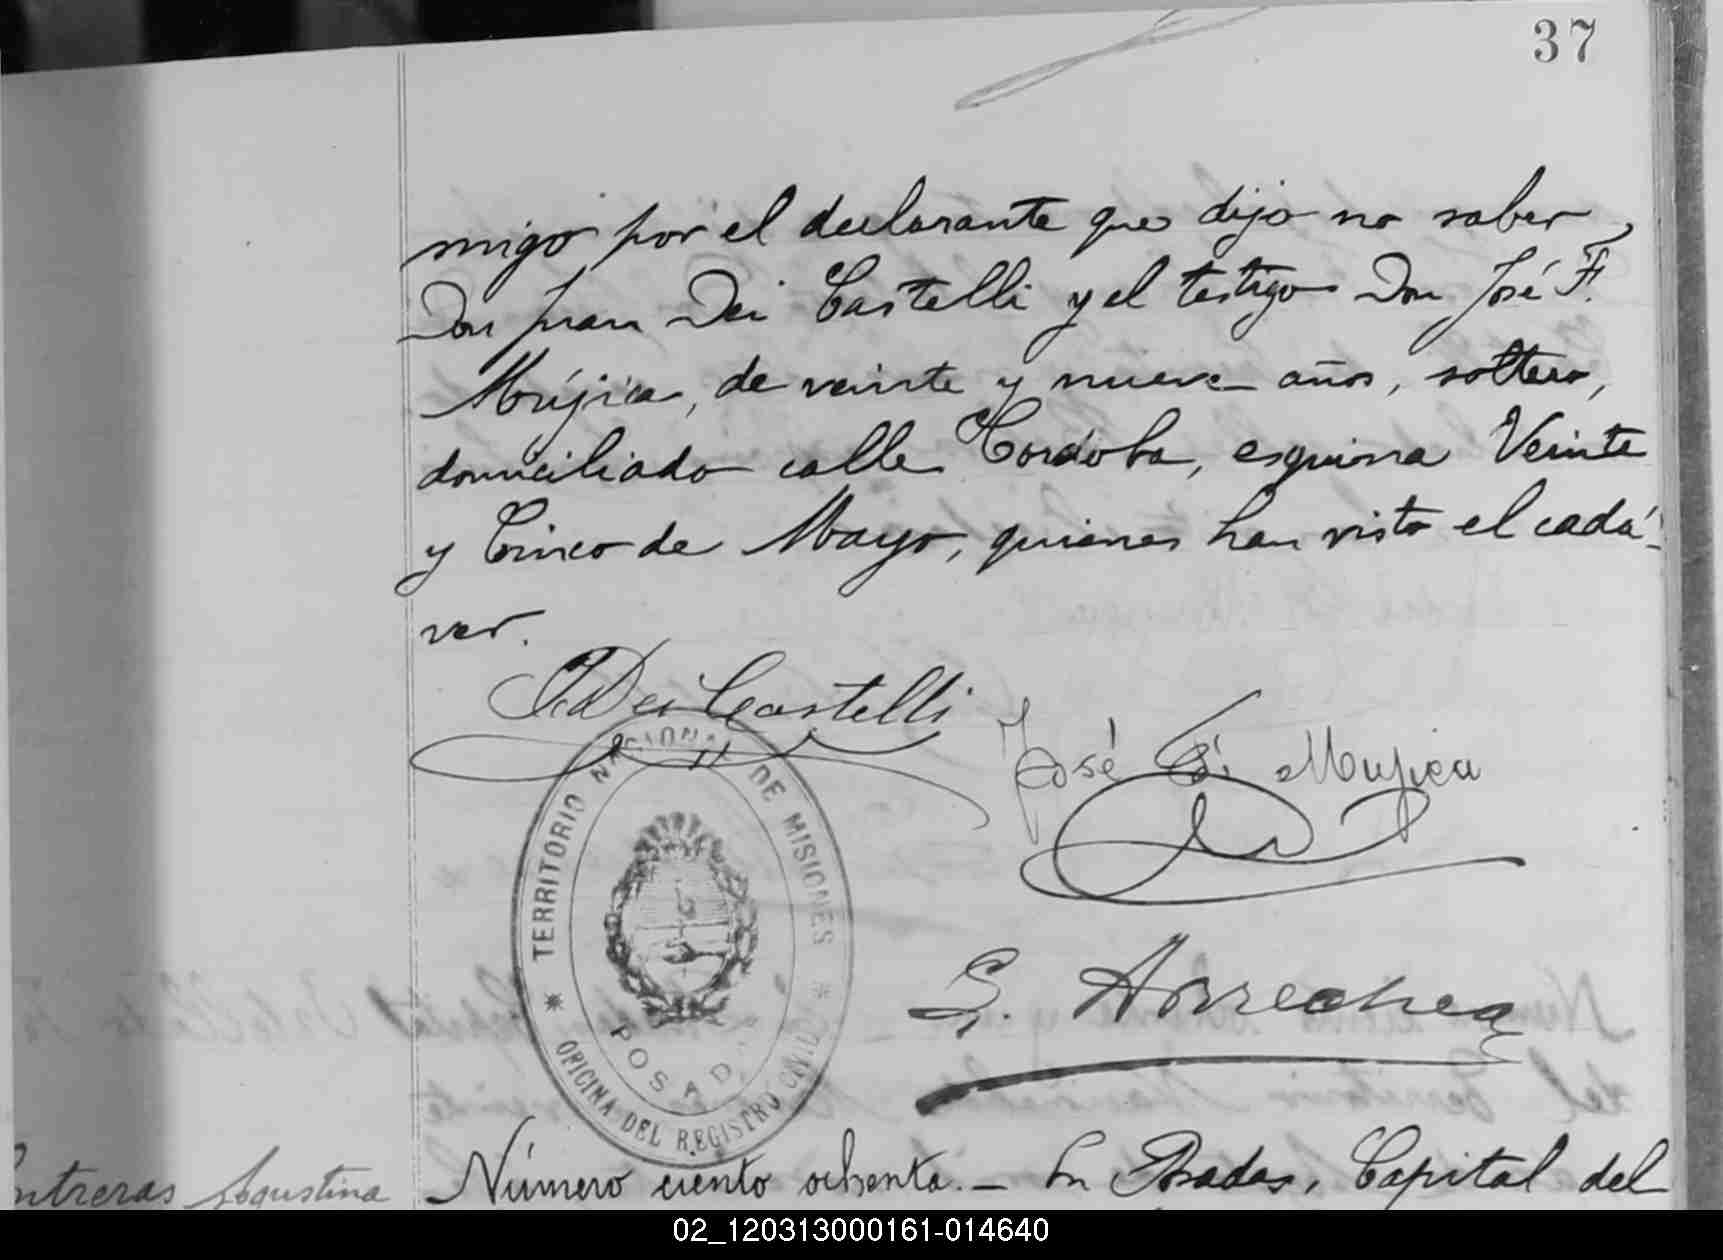 37
migo por el declarante que dijo no saber,
Don Juan Dei Castelli y el testigo Don José F.
Mújica, de veinte y nueve años, soltero,
domiciliado calle Córdoba, esquina Veinte
y Cinco de Mayo, quienes han visto el cadá-
ver.
J. Dei Castelli
José Fi Mujica
TERRITORIO NACIONAL DE MISIONES
POSADAS
OFICINA DEL REGISTRO CIVIL
G. Arrechea
ntreras Agustina
Número ciento ochenta. - En Posadas, Capital del
02_120313000161-014640